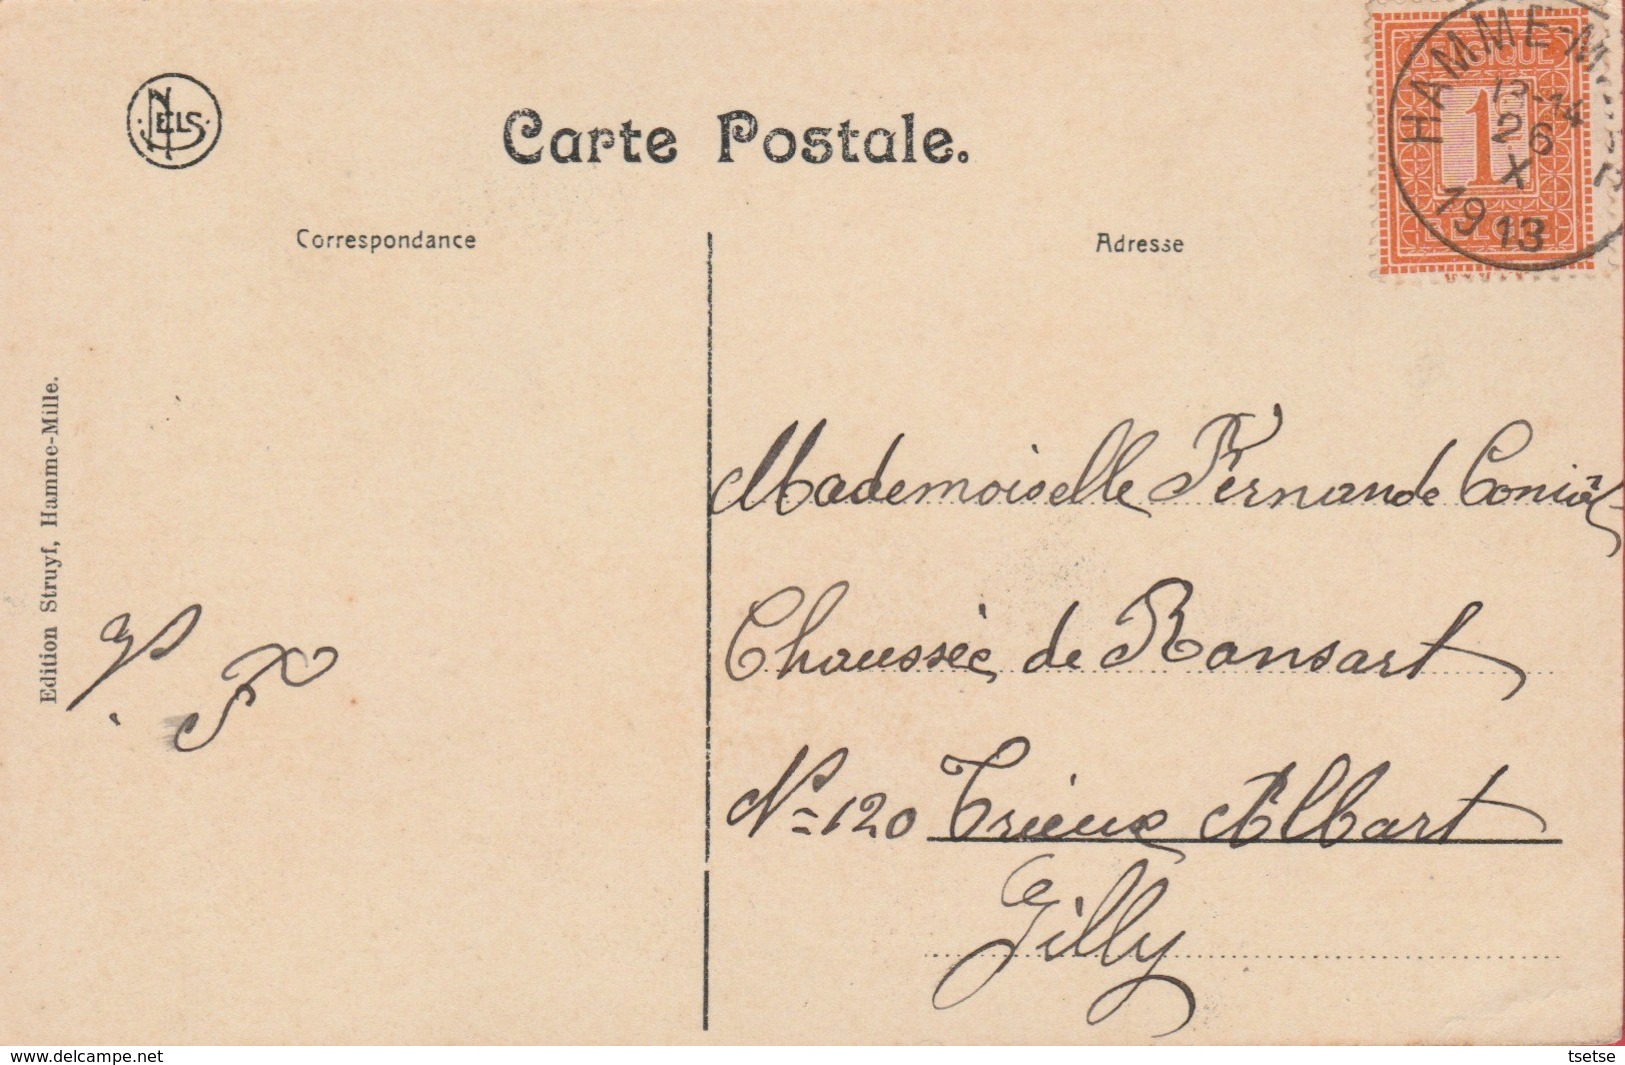 NELS
Carte Postale.
Correspondance
Adresse
BELGIQUE
1
HAMME-M
12-14
26
X
1913
Edition Struyf, Hamme-Mille.
Mademoiselle Fernande
Chaussée de Ransart
N= 120 Trieux Albart
Gilly
www.delcampe.net
tsetse